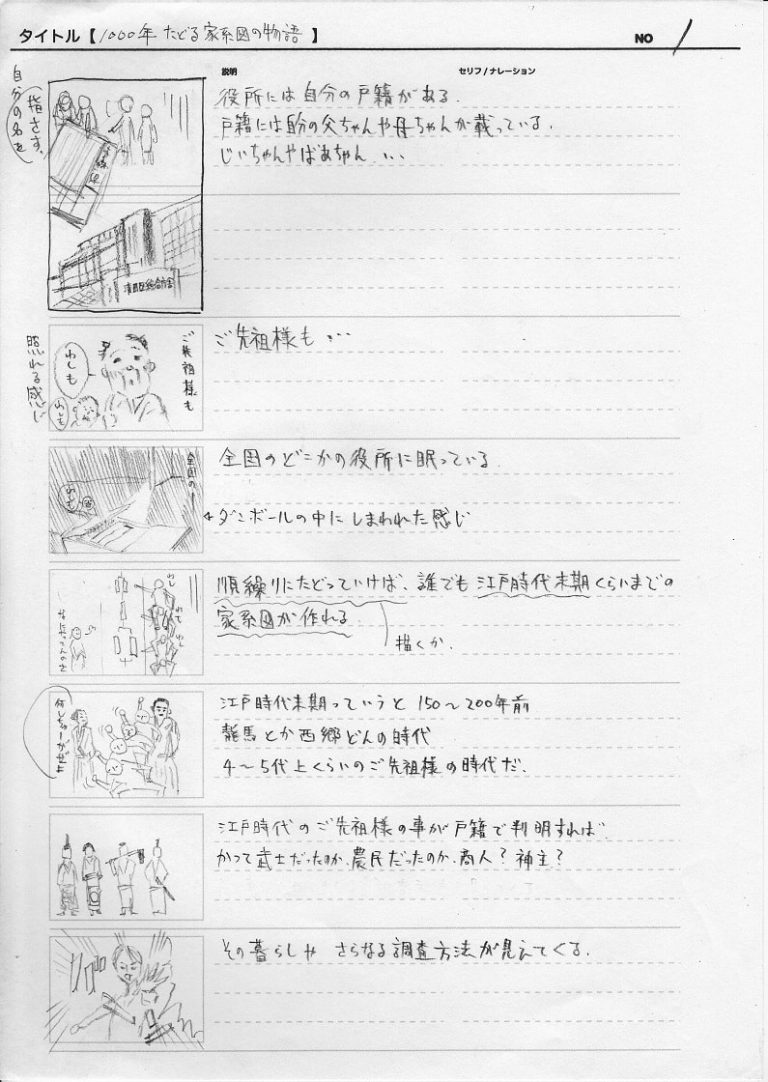 タイトル【1000年たどる家系図の物語】
NO 1
説明
セリフ/ナレーション
自分の名を
指さす。
役所には自分の戸籍がある。
戸籍には自分の父ちゃんや母ちゃんが載っている。
じいちゃんやばあちゃん…
照れる感じ
ご先祖様も
わしも
わしも
ご先祖様も…
全国の
全国のどこかの役所に眠っている。
←ダンボールの中にしまわれた感じ
順繰りにたどっていけば、誰でも江戸時代末期くらいまでの
家系図が作れる
描くか。
江戸時代末期っていうと150〜200年前
龍馬とか西郷どんの時代
4〜5代上くらいのご先祖様の時代だ。
江戸時代のご先祖様の事が戸籍で判明すれば
かつて武士だったのか、農民だったのか、商人?神主?
バ
その暮らしやさらなる調査方法が見えてくる。